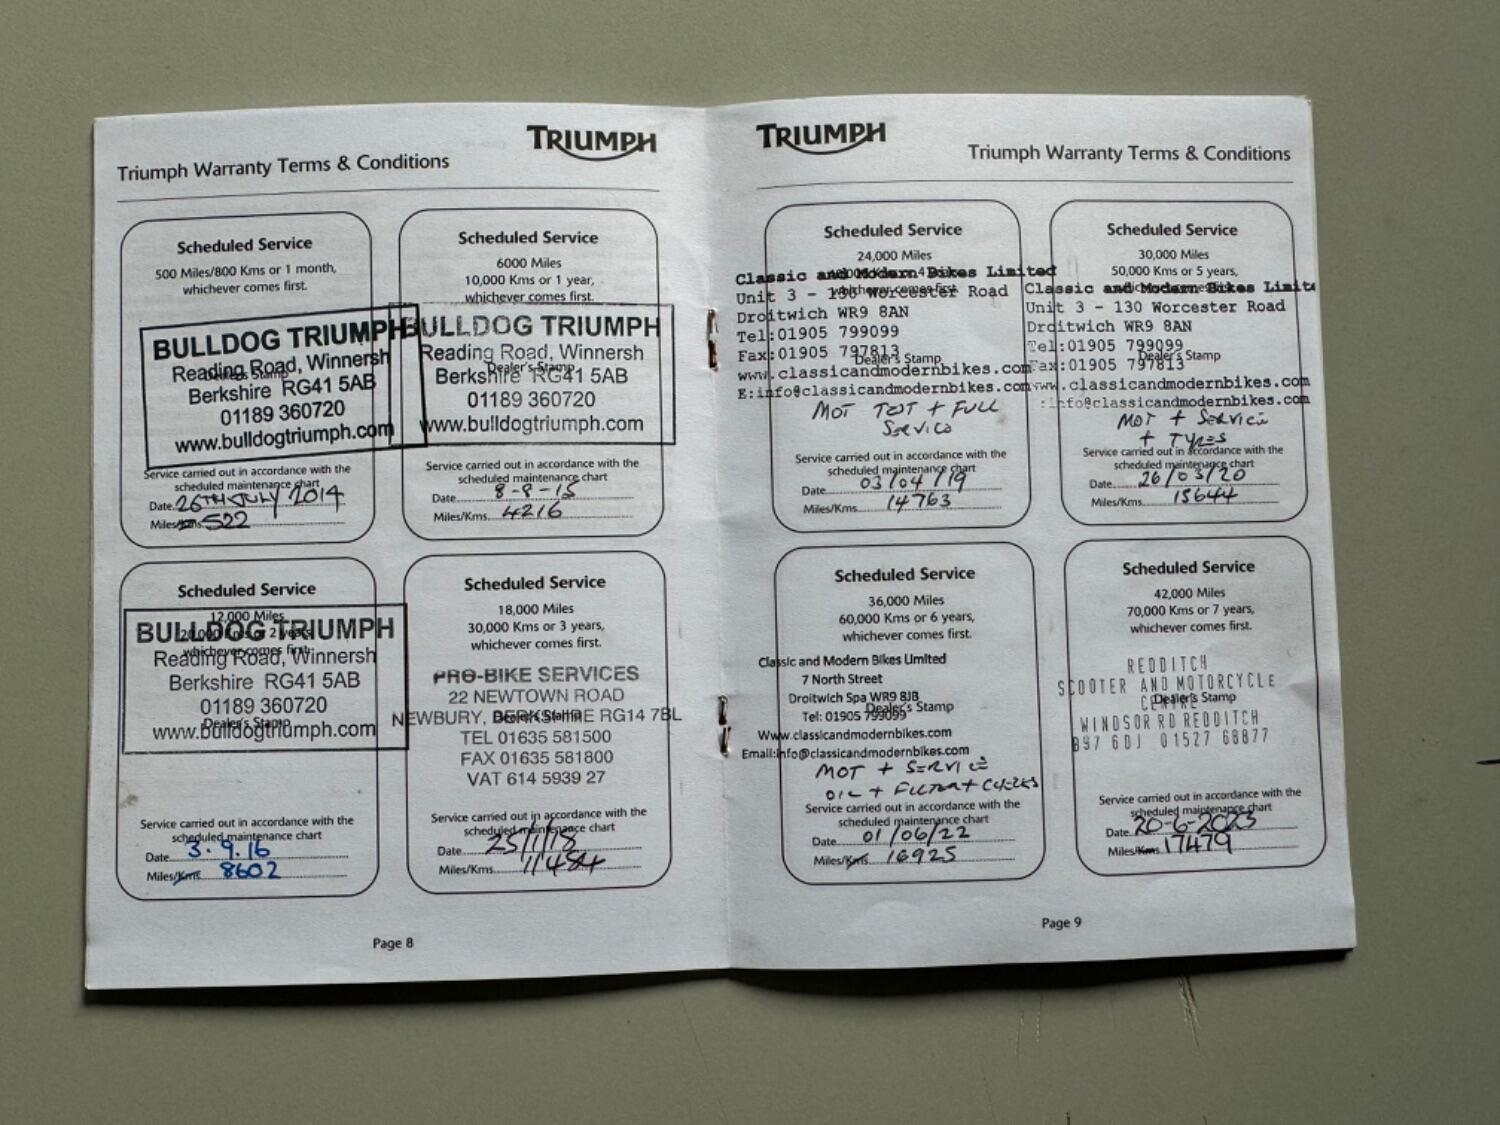 TRIUMPH
Triumph Warranty Terms & Conditions
Scheduled Service
500 Miles/800 Kms or 1 month,
whichever comes first.
BULLDOG TRIUMPH
Reading Road, Winnersh
Dealer's Stamp
Berkshire RG41 5AB
01189 360720
www.bulldogtriumph.com
Service carried out in accordance with the
scheduled maintenance chart
Date 26TH JULY 2014
Miles/Kms 522
Scheduled Service
6000 Miles
10,000 Kms or 1 year,
whichever comes first.
BULLDOG TRIUMPH
Reading Road, Winnersh
Dealer's Stamp
Berkshire RG41 5AB
01189 360720
www.bulldogtriumph.com
Service carried out in accordance with the
scheduled maintenance chart
Date 8-8-15
Miles/Kms 4216
Scheduled Service
12,000 Miles
BULLDOG TRIUMPH
20,000 Kms or 2 years,
whichever comes first.
Reading Road, Winnersh
Berkshire RG41 5AB
01189 360720
Dealer's Stamp
www.bulldogtriumph.com
Service carried out in accordance with the
scheduled maintenance chart
Date 3.9.16
Miles/Kms 8602
Scheduled Service
18,000 Miles
30,000 Kms or 3 years,
whichever comes first.
PRO-BIKE SERVICES
22 NEWTOWN ROAD
NEWBURY, BERKSHIRE RG14 7BL
Dealer's Stamp
TEL 01635 581500
FAX 01635 581800
VAT 614 5939 27
Service carried out in accordance with the
scheduled maintenance chart
Date 25/1/18
Miles/Kms 11484
Page 8
TRIUMPH
Triumph Warranty Terms & Conditions
Scheduled Service
24,000 Miles
Classic and Modern Bikes Limited
whichever comes first.
Unit 3 - 130 Worcester Road
Droitwich WR9 8AN
Tel:01905 799099
Fax:01905 797813
Dealer's Stamp
www.classicandmodernbikes.com
E:info@classicandmodernbikes.com
MOT TEST + FULL
SERVICE
Service carried out in accordance with the
scheduled maintenance chart
Date 03/04/19
Miles/Kms 14763
Scheduled Service
30,000 Miles
50,000 Kms or 5 years,
Classic and Modern Bikes Limite
Unit 3 - 130 Worcester Road
Droitwich WR9 8AN
Tel:01905 799099
Dealer's Stamp
Fax:01905 797813
www.classicandmodernbikes.com
:info@classicandmodernbikes.com
MOT + SERVICE
+ TYRES
Service carried out in accordance with the
scheduled maintenance chart
Date 26/03/20
Miles/Kms 15644
Scheduled Service
36,000 Miles
60,000 Kms or 6 years,
whichever comes first.
Classic and Modern Bikes Limited
7 North Street
Droitwich Spa WR9 8JB
Dealer's Stamp
Tel: 01905 799099
Www.classicandmodernbikes.com
Email:info@classicandmodernbikes.com
MOT + SERVICE
OIL + FILTER +
Service carried out in accordance with the
scheduled maintenance chart
Date 01/06/22
Miles/Kms 16925
Scheduled Service
42,000 Miles
70,000 Kms or 7 years,
whichever comes first.
REDDITCH
SCOOTER AND MOTORCYCLE
CENTRE
Dealer's Stamp
WINDSOR RD REDDITCH
B97 6DJ 01527 68877
Service carried out in accordance with the
scheduled maintenance chart
Date 20-6-2023
Miles/Kms 17479
Page 9